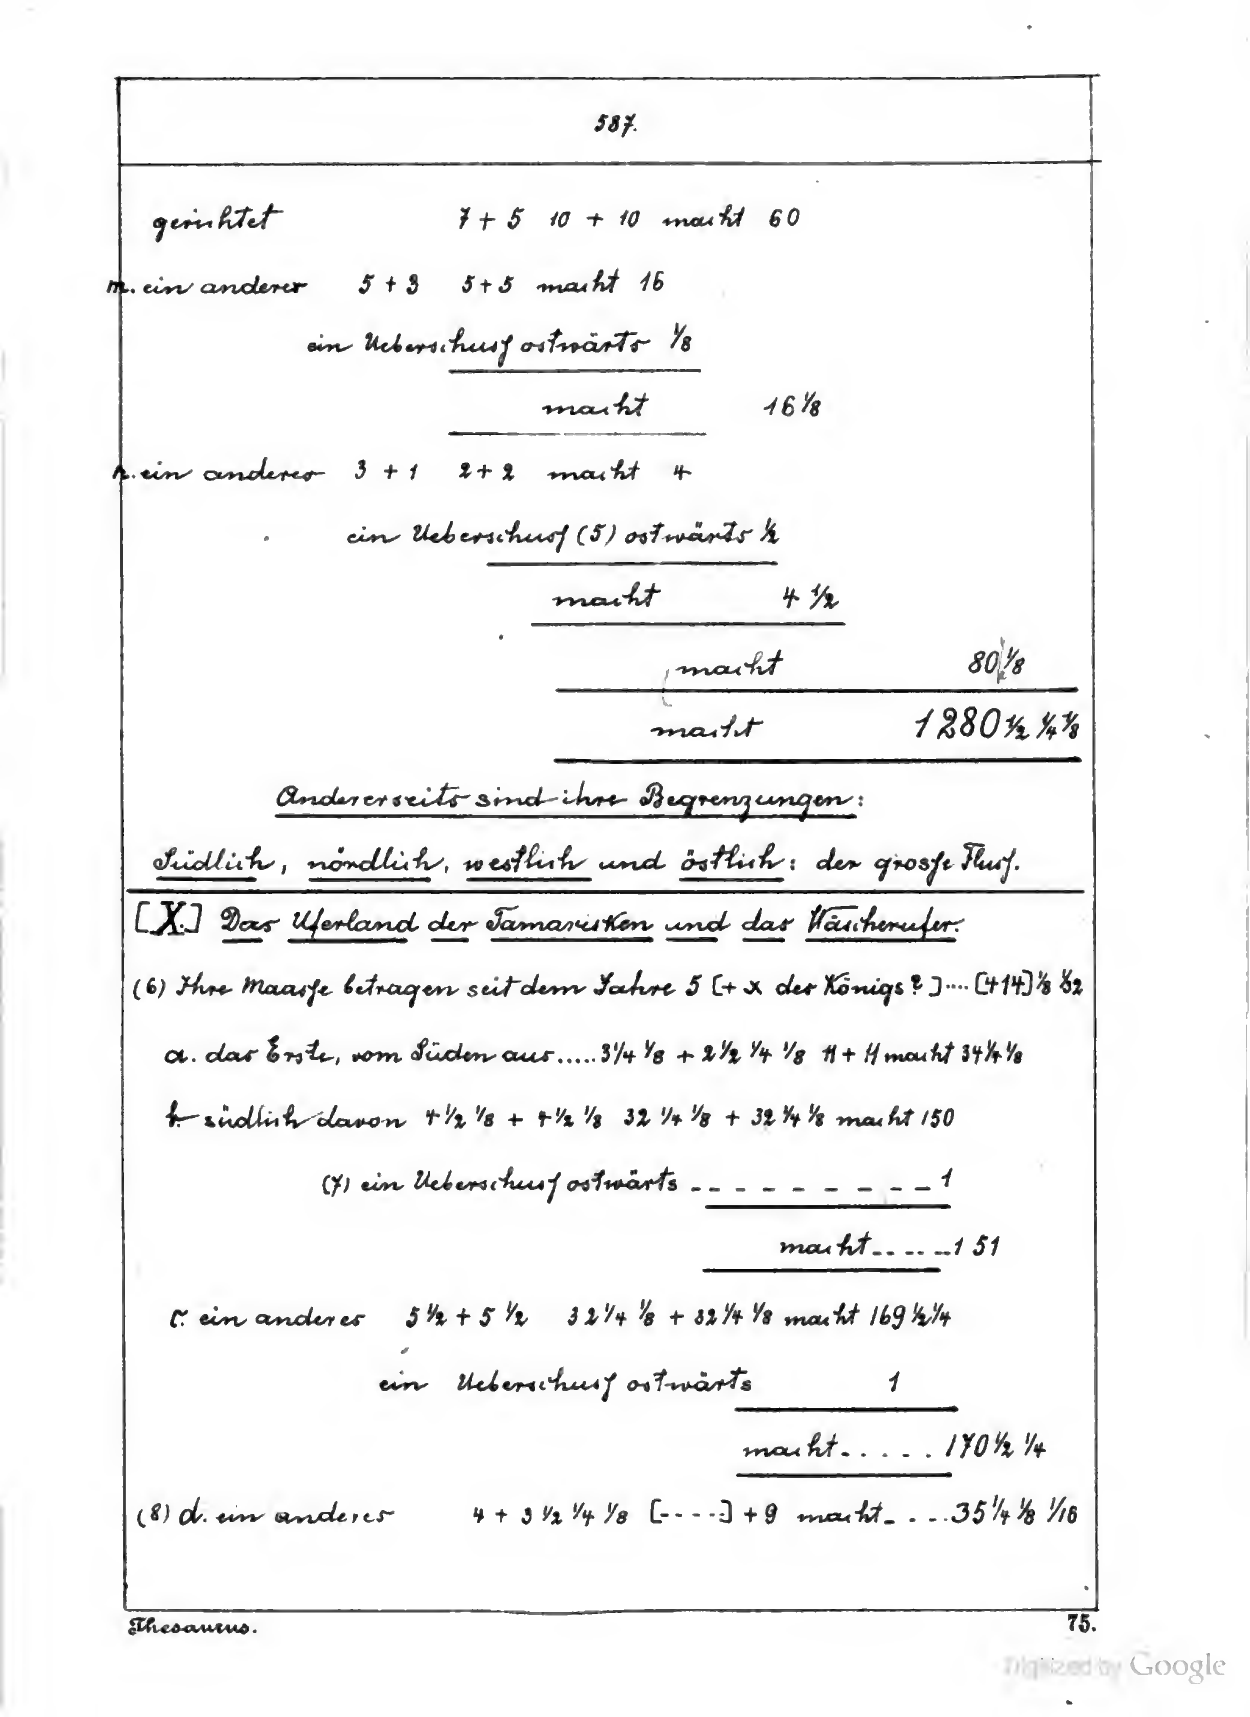 587.
gerichtet 7 + 5 10 + 10 macht 60
m. ein anderer 5 + 3 5 + 5 macht 16
ein Ueberschuss ostwärts 1/8
macht 16 1/8
n. ein anderes 3 + 1 2 + 2 macht 4
ein Ueberschuss (5) ostwärts 1/2
macht 4 1/2
macht 80 1/8
macht 1280 1/2 1/4 1/8
Andererseits sind ihre Begrenzungen:
Südlich, nördlich, westlich und östlich: der grosse Fluss.
[X.] Das Uferland der Tamarisken und das Wäscherufer.
(6) Ihre Maasse betragen seit dem Jahre 5 [+ x des Königs?] .... [414] 1/8 1/32
a. das Erste, vom Süden aus ..... 3 1/4 1/8 + 2 1/2 1/4 1/8 11 + 11 macht 34 1/4 1/8
b. südlich davon 4 1/2 1/8 + 4 1/2 1/8 32 1/4 1/8 + 32 1/4 1/8 macht 150
(7) ein Ueberschuss ostwärts _ _ _ _ _ _ _ _ _ 1
macht _ _ .. _ _ 151
c. ein anderes 5 1/2 + 5 1/2 32 1/4 1/8 + 32 1/4 1/8 macht 169 1/2 1/4
ein Ueberschuss ostwärts 1
macht . . . . . 170 1/2 1/4
(8) d. ein anderes 4 + 3 1/2 1/4 1/8 [- - - - -] + 9 macht _ . . . 35 1/4 1/8 1/16
Thesaurus. 75.
Digitized by Google